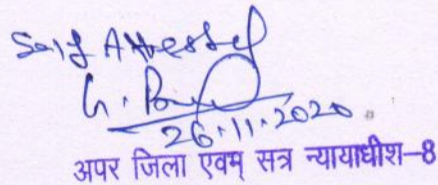 Self Attested
26.11.2020
अपर जिला एवम् सत्र न्यायाधीश-8